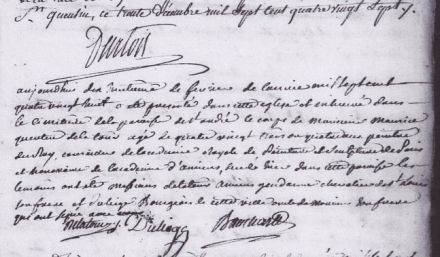 St. Quentin, ce trente Décembre mil Sept cent quatre vingt Sept
aujourdhui dix huitieme de fevrier de lannée mil Sept cent
quatre vingt huit a été presenté dans cette eglise et inhumé dans
le Cimetiere de la paroisse de St andré le corps de monsieur maurice
quentin de la tour agé de quatre vingt trois ans peintre
du Roy, conseiller de lacademie Royale de Peinture et Sculpture de Paris
et honoraire de lacademie d'amiens, decedé hier dans cette paroisse les
temoins ont été messieurs delatour ancien gendarme chevalier de St Louis
son frere et duliege Bourgeois de cette ville de monsieur son frere
qui ont signé avec nous
Delatour Duliege